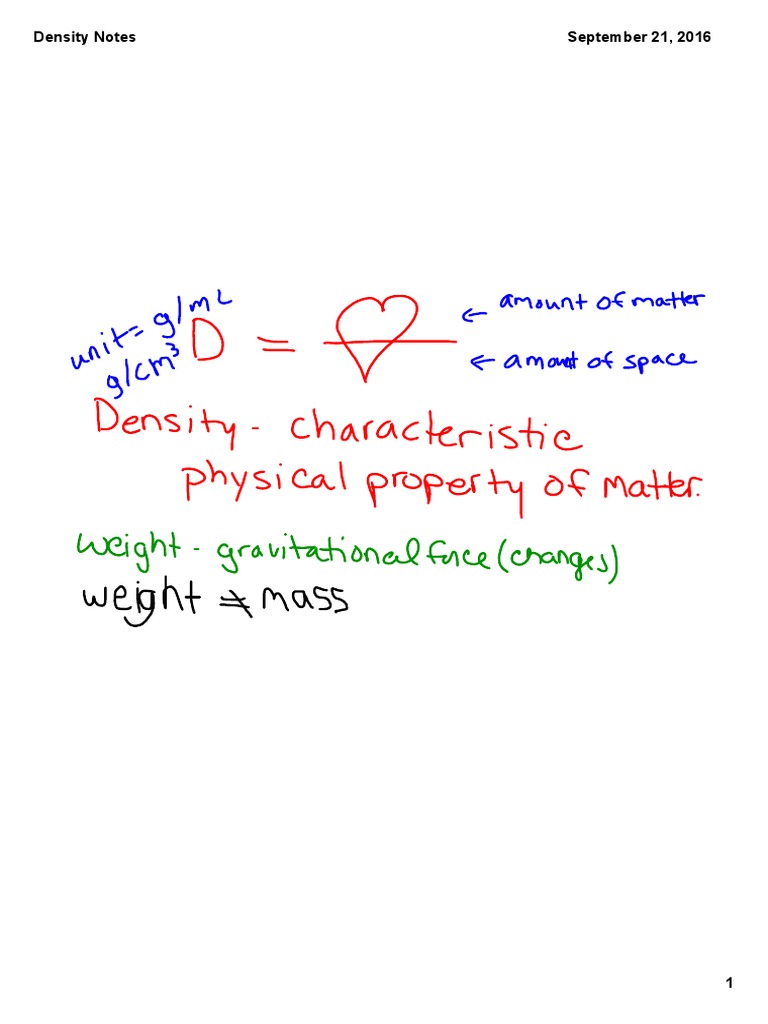 Density Notes
September 21, 2016
unit= g/mL
g/cm³
D =
← amount of matter
← amount of space
Density - characteristic
physical property of matter.
weight - gravitational force (changes)
weight ≠ mass
1